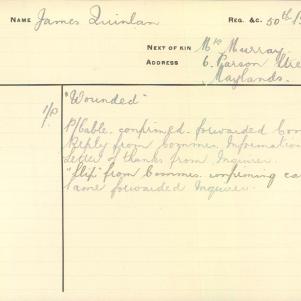 NAME James Quinlan REG. &C. 50th
NEXT OF KIN Mrs Murray
ADDRESS 6. Parson Stre
Maylands.
"Wounded"
P/Cable. confirmed. forwarded Com
Reply from Commes. Information
Letter of thanks from Inquirer.
"Slip" from Commes. confirming ca
same forwarded Inquirer.